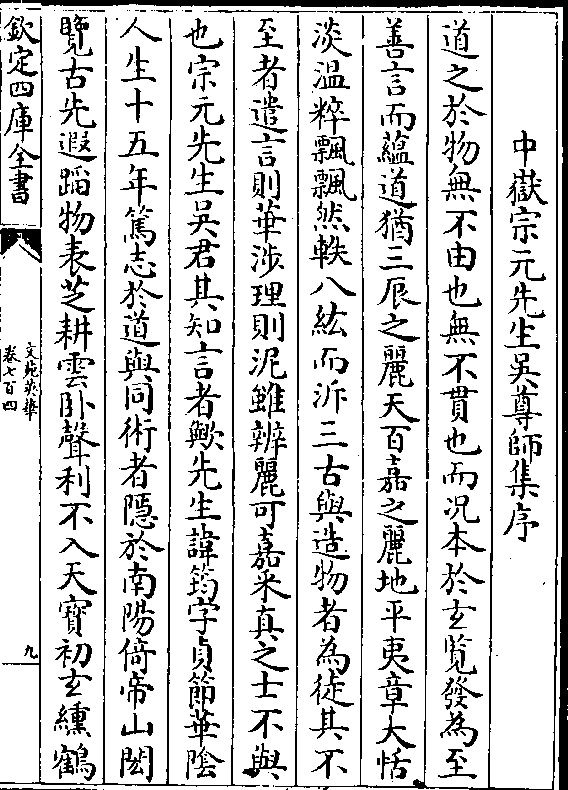 中嶽宗元先生吳尊師集序
道之於物無不由也無不貫也而況本於𤣥覽發為至
善言而蘊道猶三辰之麗天百嘉之麗地平夷章大恬
淡溫粹飄飄然軼八紘而泝三古與造物者為徒其不
至者遣言則華涉理則泥雖辨麗可嘉采真之士不與
也宗元先生吳君其知言者歟先生諱筠字貞節華陰
人生十五年篤志於道與同術者隱於南陽倚帝山閎
覽古先遐蹈物表芝耕雲卧聲利不入天寶初𤣥纁鶴
欽定四庫全書
文苑英華
卷七百四
九